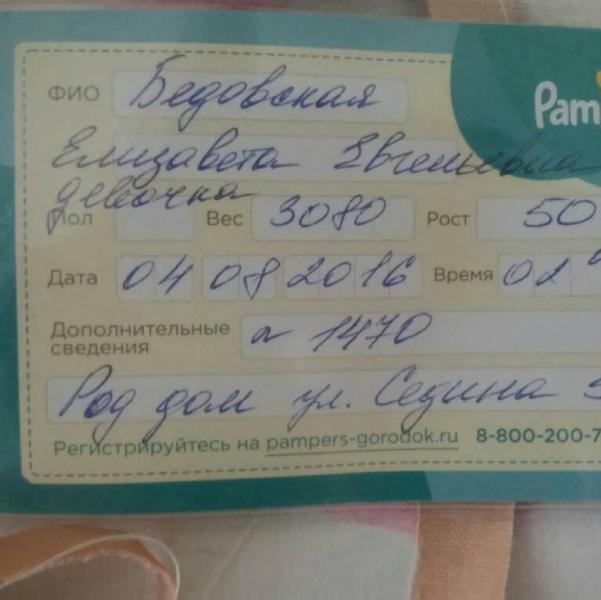 ФИО Бедовская
Pam
Елизавета Евгеньевна
девочка
Пол Вес 3080 Рост 50
Дата 04 08 2016 Время 02
Дополнительные
сведения № 1470
Род дом ул. Седина
Регистрируйтесь на pampers-gorodok.ru 8-800-200-7